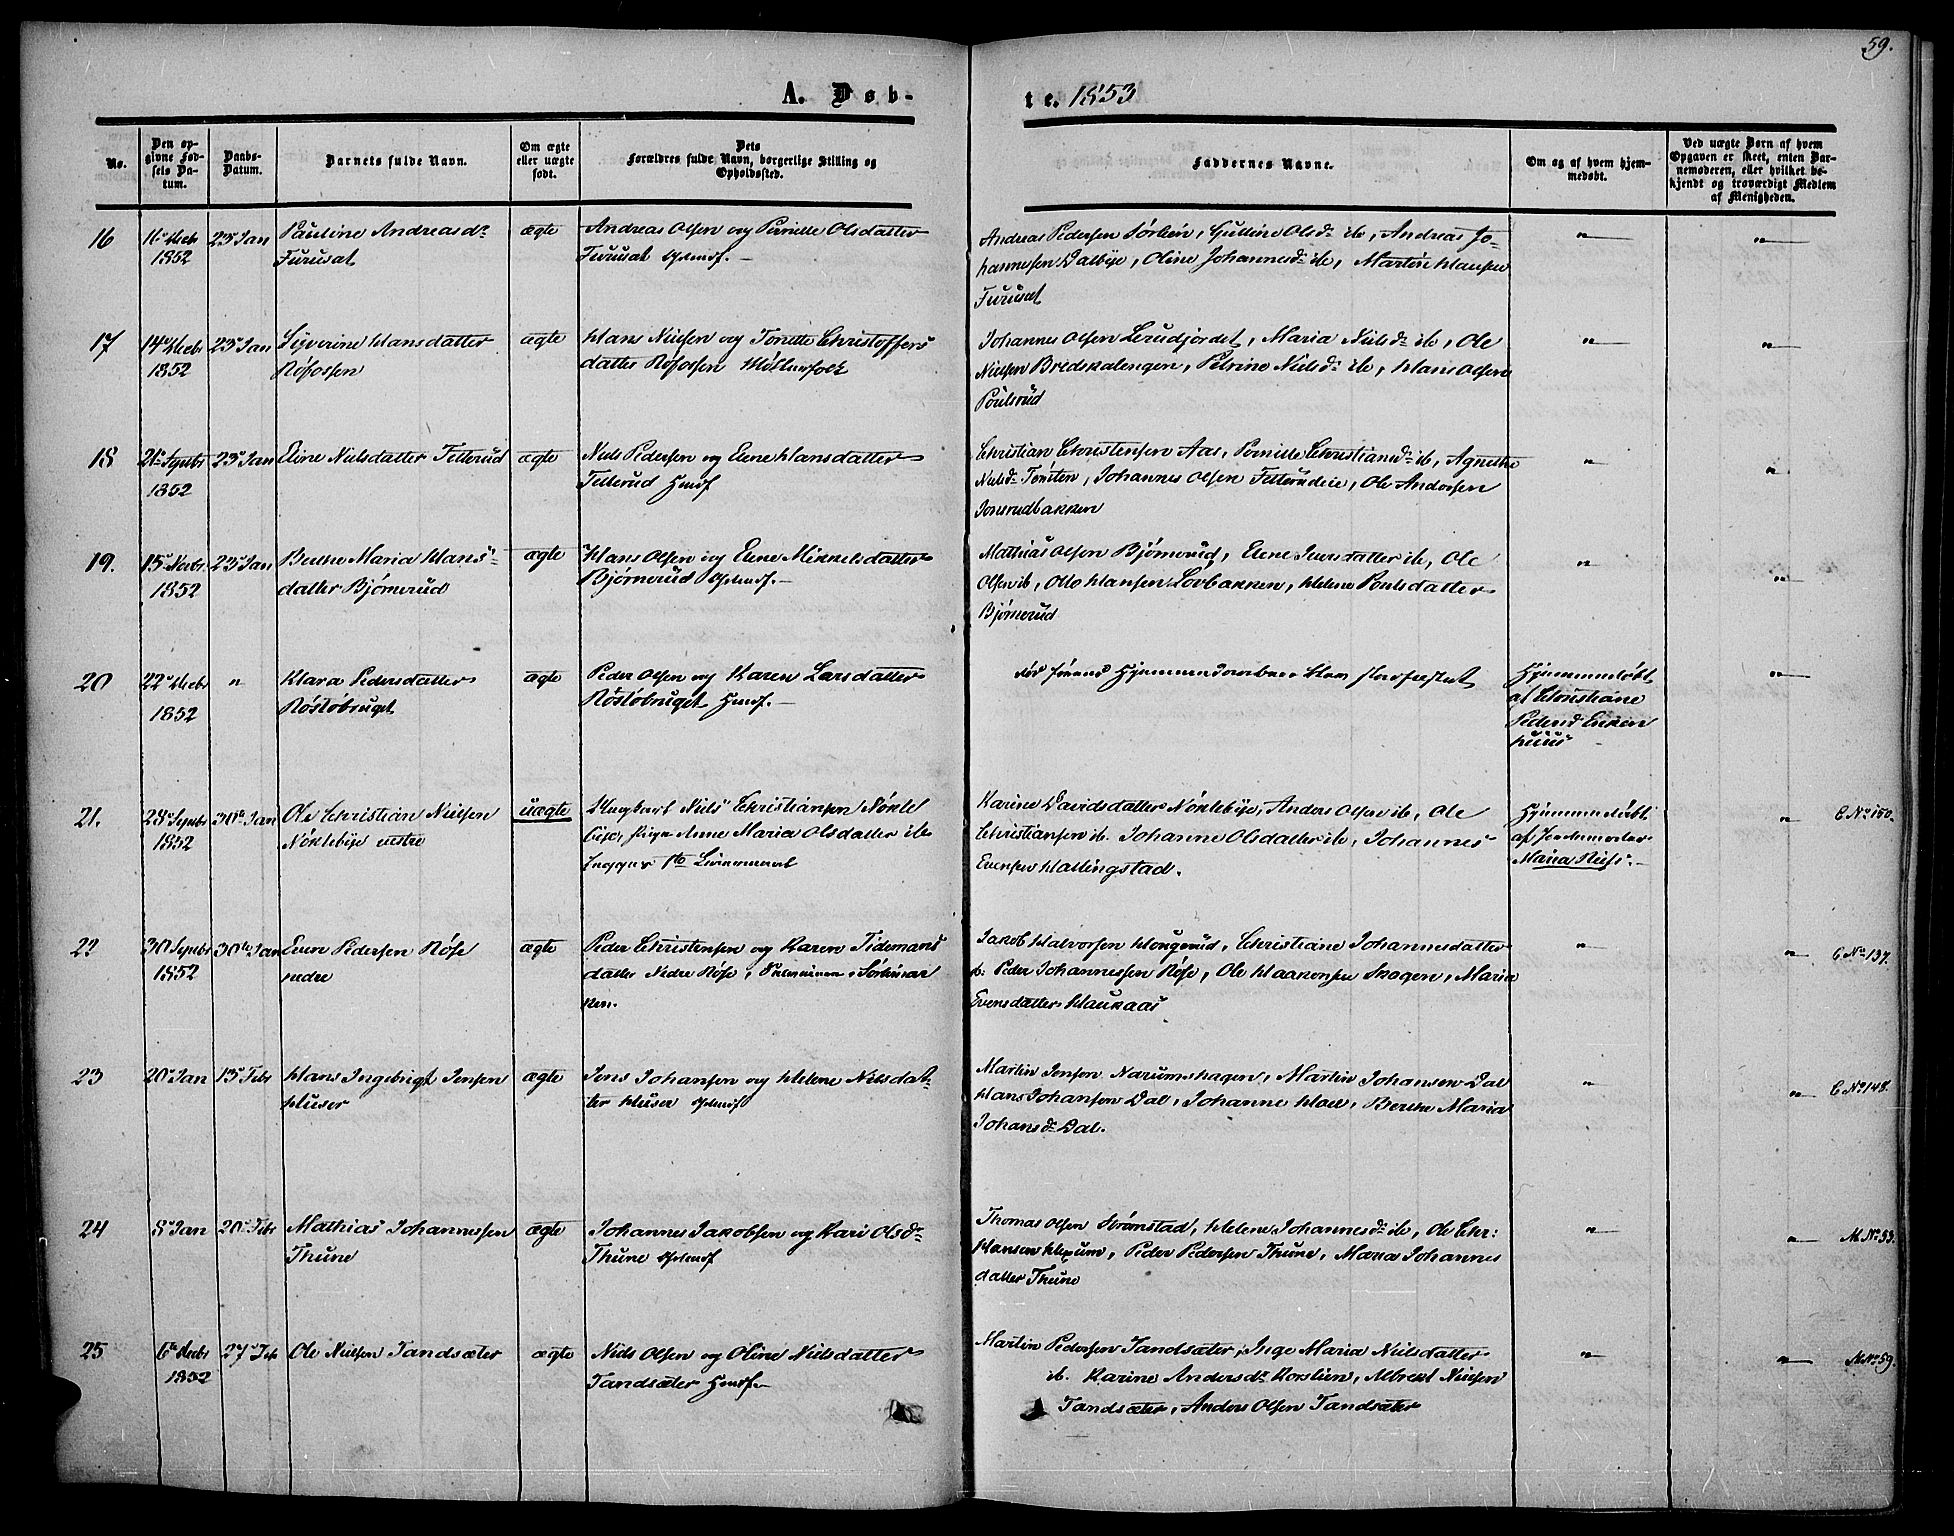 59.
A. Døb-
te. 1853
No.
Den op-
givne Fød-
sels Da-
tum.
Daabs-
Datum.
Barnets fulde Navn.
Om ægte
eller uægte
født.
Dets
Forældres fulde Navn, borgerlige Stilling og
Opholdssted.
Faddernes Navne.
Om og af hvem hjem-
medøbt.
Ved uægte Børn af hvem
Opgaven er skeet, enten Bar-
nemoderen, eller hvilket be-
kjendt og troværdigt Medlem
af Menigheden.
16
1852
23 Jan
Pauline Andreasdr
Furusat
ægte
Andreas Olsen og Pernille Olsdatter
Furusat
Andreas Pedersen Sørlien, Gulline Olsdr ib, Andreas Jo-
hannesen Dalbye, Oline Johannesdr ib, Martin Hansen
Furusat
17
14 Decbr
1852
23 Jan
Syverine Hansdatter
Røfossen
ægte
Hans Nielsen og Tonette Christoffers
datter Røfossen Møllerfolk
Johannes Olsen Lerudjordet, Maria Nielsdr ib, Ole
Nielsen Bredskalengen, Petrine Nielsdr ib, Hans Olsen
Poulsrud
18
21 Septbr
1852
23 Jan
Eline Nielsdatter Fetterud
ægte
Niels Pedersen og Elene Hansdatter
Fetterud Husmf
Christian Christensen Aas, Pernille Christiansdr ib, Agnethe
Nielsdr Tømten, Johannes Olsen Fetterudeie, Ole Andersen
Jonsrudbakken
19.
15 Novbr
1852
23 Jan
Berthe Maria Hans-
datter Bjørnerud
ægte
Hans Olsen og Elene Mikkelsdatter
Bjørnerud
Mathias Olsen Bjørnerud, Elene Iversdatter ib, Ole
Olsen ib, Otto Hansen Lovbakken, Helene Poulsdatter
Bjørnerud
20
22 Decbr
1852
"
Klara Pedersdatter
Røstøbruget
ægte
Peder Olsen og Karen Larsdatter
Røstøbruget Husmf.
død førend Hjemmedaaben blev stadfæstet
Hjemmedøbt
af Christiane
Pedersd Enken
huus
21.
28 Septbr
1852
30te Jan
Ole Christian Nielsen
Nøklebye vestre
uægte
Ungkarl Niels Christiansen Nøkle
bye, Pige Anne Maria Olsdatter ib
Begges 1te Leiermaal
Karine Davidsdatter Nøklebye, Anders Olsen ib, Ole
Christiansen ib. Johanne Olsdatter ib, Johannes
Evensen Hallingstad.
Hjemmedøbt
af Jordemoder
Maria Riis.
C No 150.
22
30 Septbr
1852
30te Jan
Even Pedersen Røse
nedre
ægte
Peder Christensen og Karen Tidemands
datter Nedre Røse,
ken.
Jakob Halvorsen Hougerud, Christiane Johannesdatter
ib. Peder Johannessen Røse, Ole Haakonsen Skogen, Maria
Evensdatter Haukaas
C No 137.
23
20 Jan
13 Febr
Hans Ingebrigt Jensen
Huser
ægte
Jens Johansen og Helene Nilsdat-
ter Huser
Martin Jensen Narumshagen, Martin Johansen Dal
Hans Johansen Dal, Johanne Hoel, Berthe Maria
Johansdr Dal.
C No 148.
24
8 Jan
20 Febr
Mathias Johannessen
Thune
ægte
Johannes Jakobsen og Kari Olsdr
Thune
Thomas Olsen Strømstad, Helene Johannesdr ib, Ole Chr:
Hansen Hexum, Peder Pedersen Thune, Maria Johannes
datter Thune
M No 53.
25
6te Decbr
1852
27 Feb
Ole Nielsen Sandsæter
ægte
Niels Olsen og Oline Nielsdatter
Sandsæter Husmf.
Martin Pedersen Sandsæter, Inge Maria Nielsdatter
ib. Karine Andersdr Korslien, Albrekt Nielsen
Sandsæter, Anders Olsen Sandsæter
M No 59.